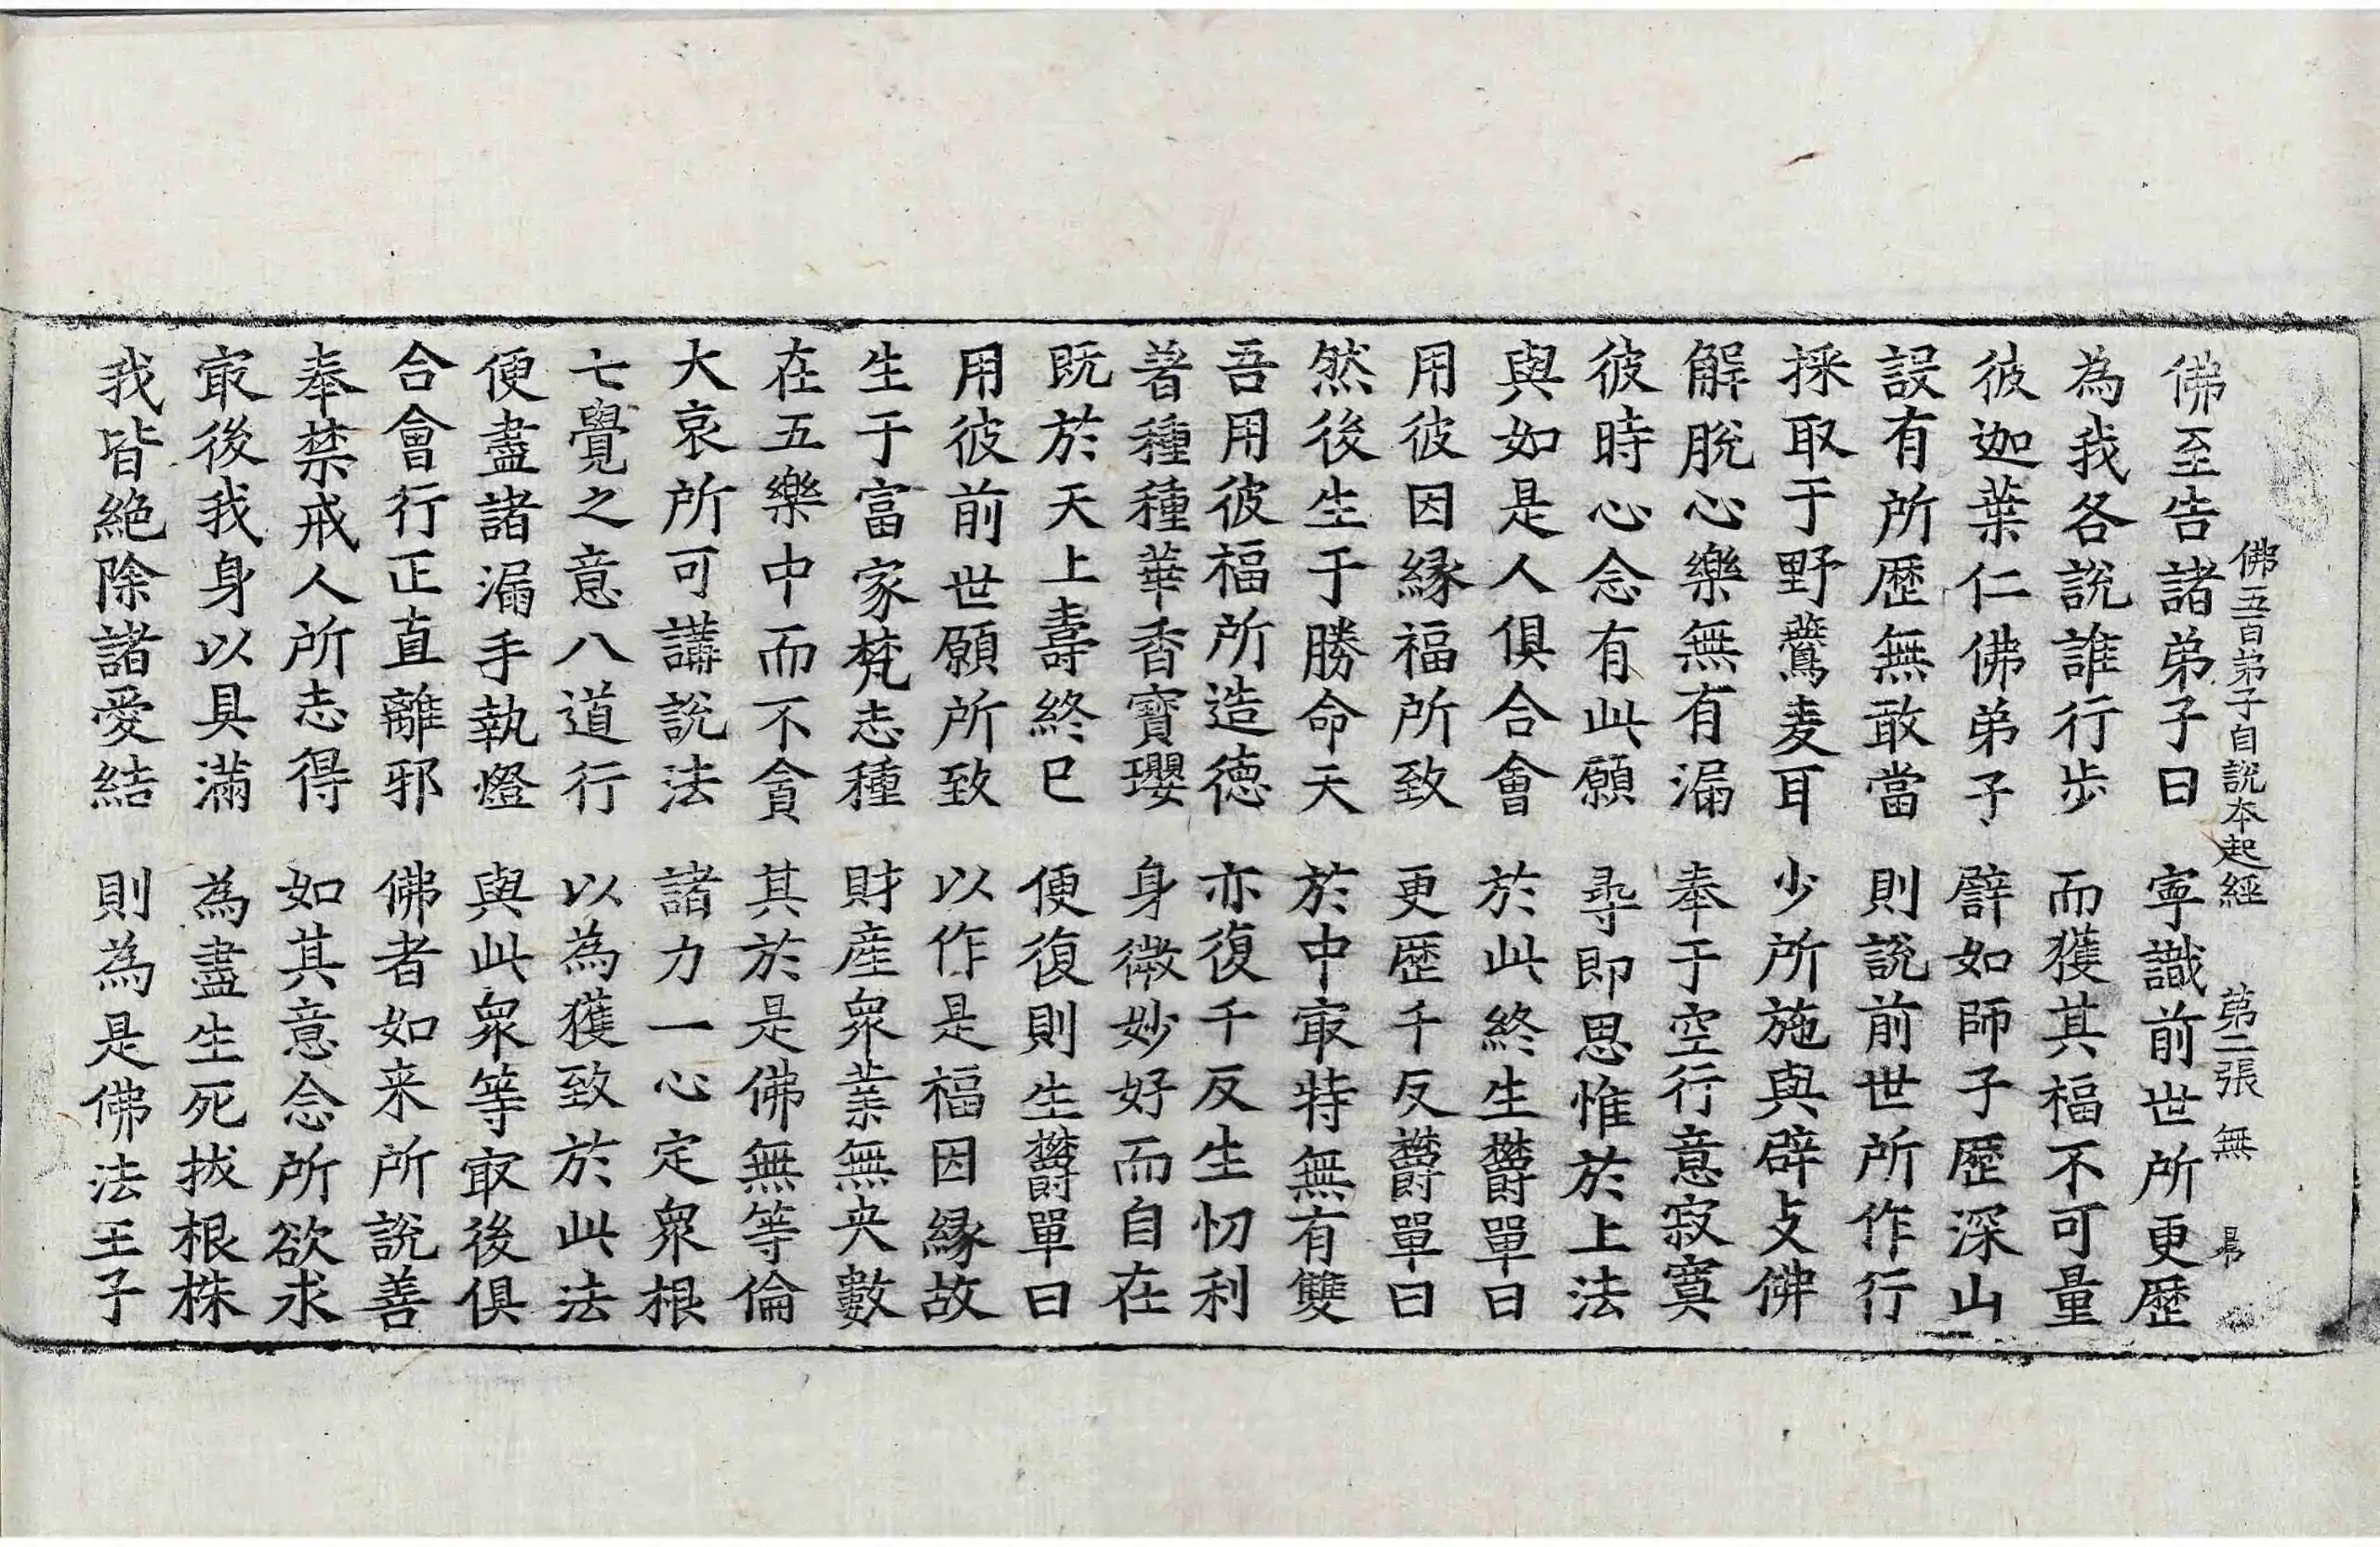 佛五百弟子自說本起經 第二張 無
佛至告諸弟子曰 寧識前世所更歷
為我各說誰行步 而獲其福不可量
彼迦葉仁佛弟子 譬如師子歷深山
設有所歷無敢當 則說前世所作行
採取于野䴏麦耳 少所施與辟攴佛
解脫心樂無有漏 奉于空行意寂寞
彼時心念有此願 尋即思惟於上法
與如是人俱合會 於此終生欝單曰
用彼因緣福所致 更歷千反欝單曰
然後生于勝命天 於中㝡特無有雙
吾用彼福所造德 亦復千反生忉利
著種種華香寶瓔 身微妙好而自在
既於天上壽終已 便復則生欝單曰
用彼前世願所致 以作是福因緣故
生于富家梵志種 財產衆業無央數
在五樂中而不貪 其於是佛無等倫
大哀所可講說法 諸力一心定衆根
七覺之意八道行 以為獲致於此法
便盡諸漏手執燈 與此衆等㝡後俱
合會行正直離邪 佛者如来所說善
奉禁戒人所志得 如其意念所欲求
㝡後我身以具滿 為盡生死拔根株
我皆絕除諸愛結 則為是佛法王子